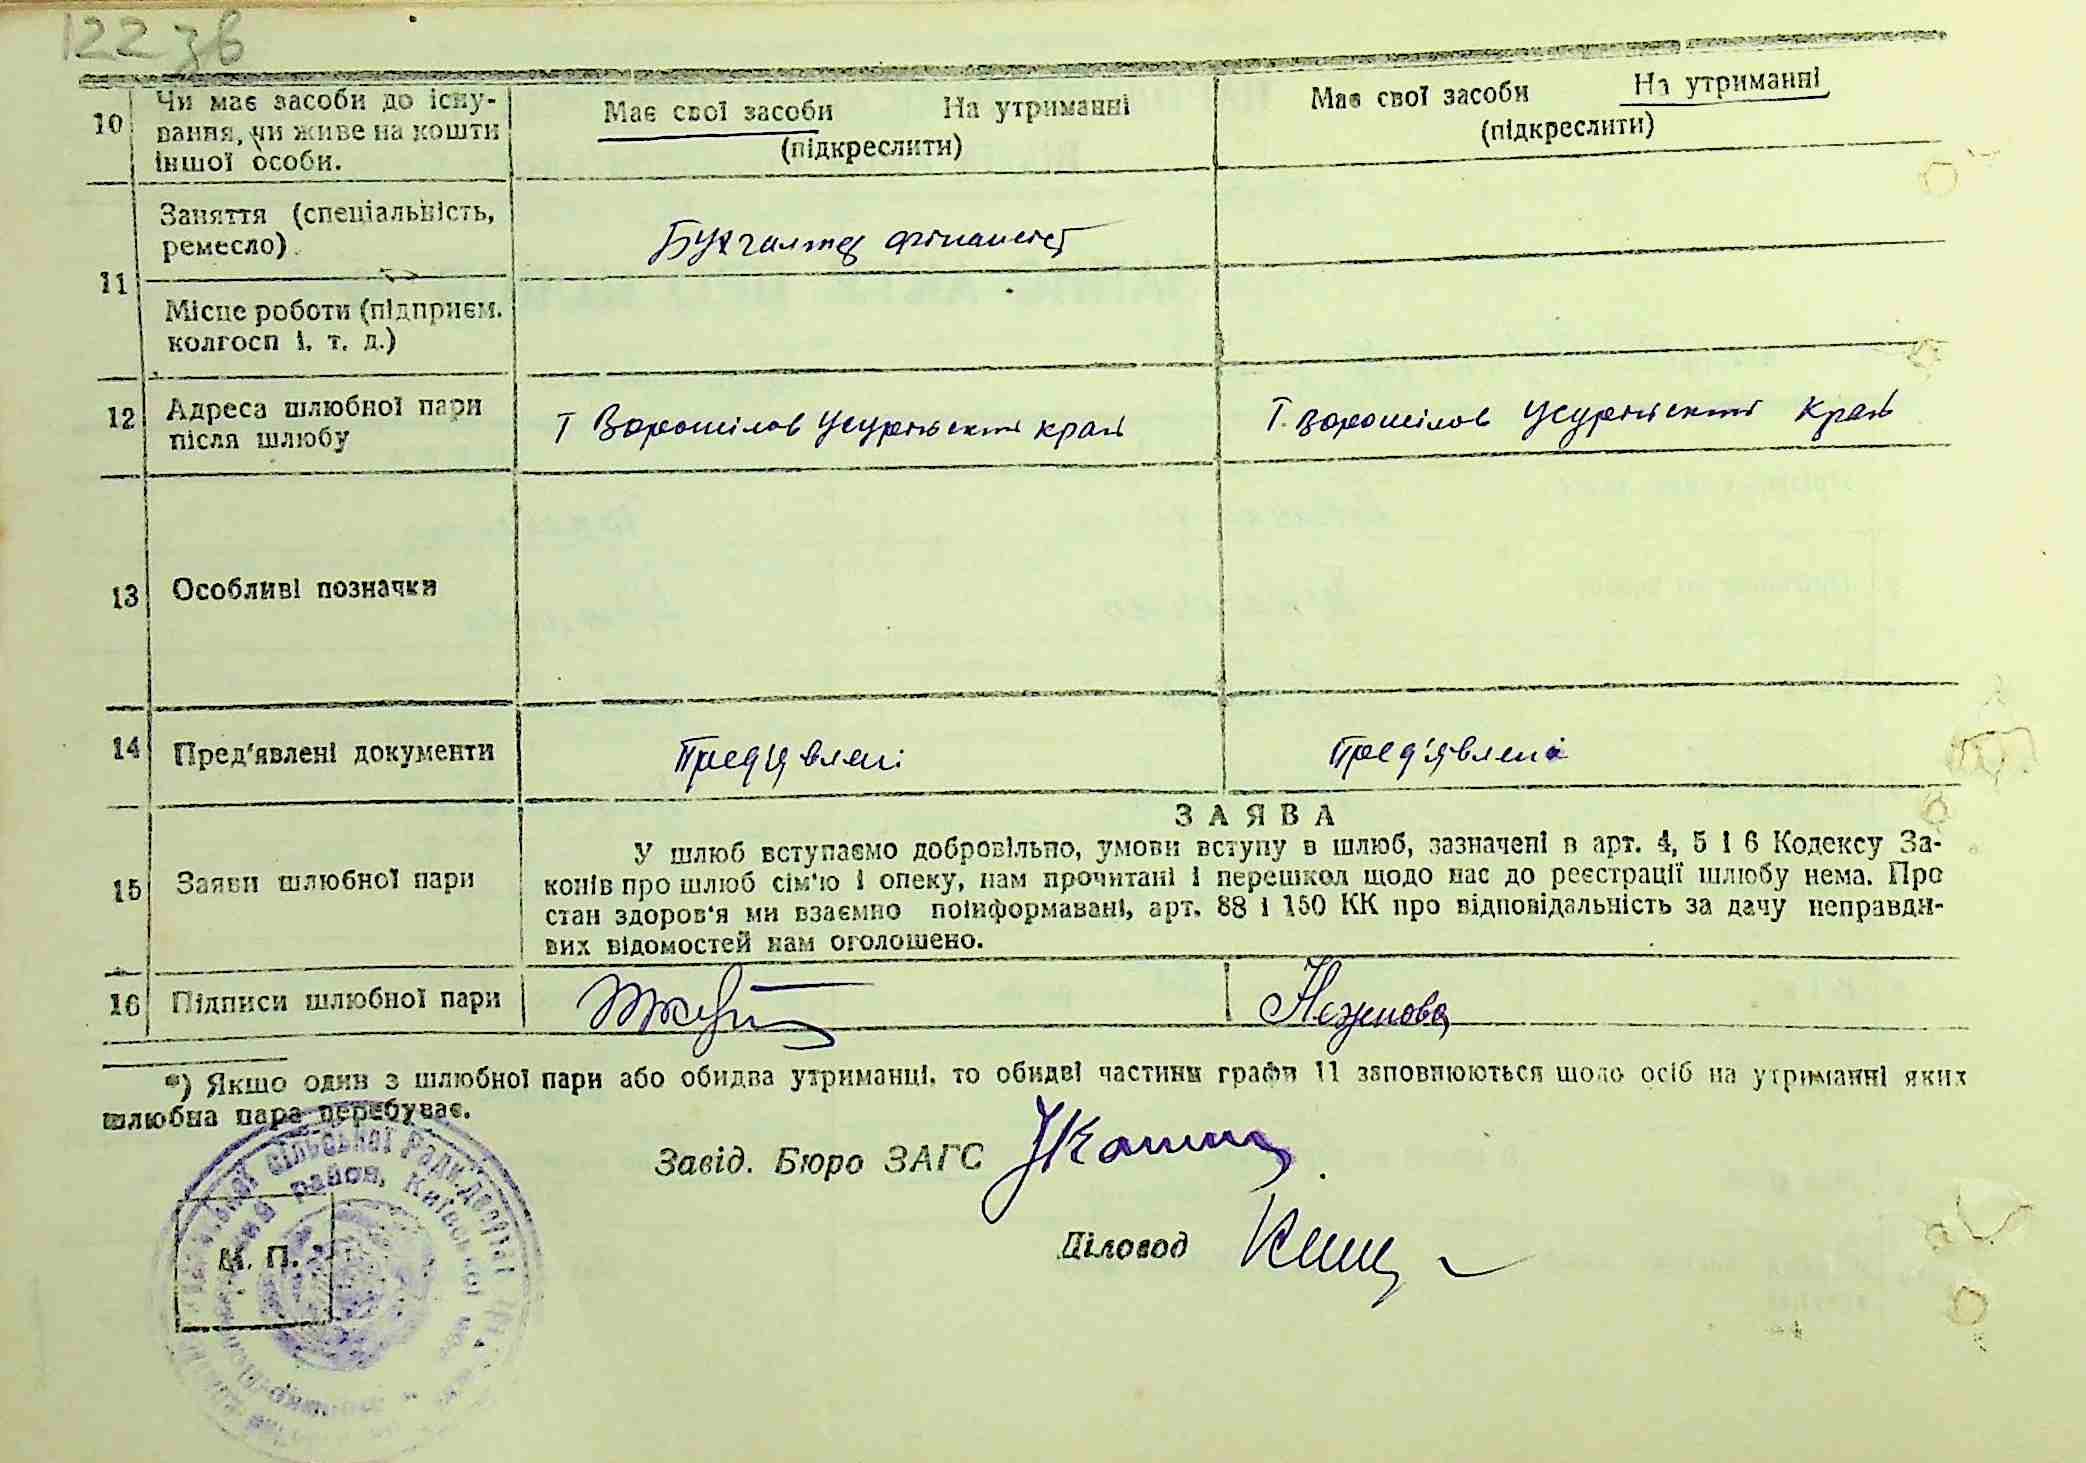 122 зв
10 Чи має засоби до існу-
вання, чи живе на кошти
іншої особи.
Має свої засоби На утриманні
(підкреслити)
Має свої засоби На утриманні
(підкреслити)
11
Заняття (спеціальність,
ремесло)
Бухгалтер фінансіст
Місце роботи (підприєм.
колгосп і. т. д.)
12 Адреса шлюбної пари
після шлюбу
Г Ворошілов Усурійський край
Г. Ворошілов Усурійський край
13 Особливі позначки
14 Пред'явлені документи
Пред'явлені
Пред'явлені
15 Заяви шлюбної пари
ЗАЯВА
У шлюб вступаємо добровільно, умови вступу в шлюб, зазначені в арт. 4, 5 і 6 Кодексу За-
конів про шлюб сім'ю і опеку, нам прочитані і перешкод щодо нас до реєстрації шлюбу нема. Про
стан здоров'я ми взаємно поінформавані, арт. 88 і 150 КК про відповідальність за дачу неправди-
вих відомостей нам оголошено.
16 Підписи шлюбної пари
*) Якщо один з шлюбної пари або обидва утриманці, то обидві частини графи 11 заповнюються щодо осіб на утриманні яких
шлюбна пара перебуває.
Завід. Бюро ЗАГС
Діловод
М. П.
сільської Ради
район, Київської